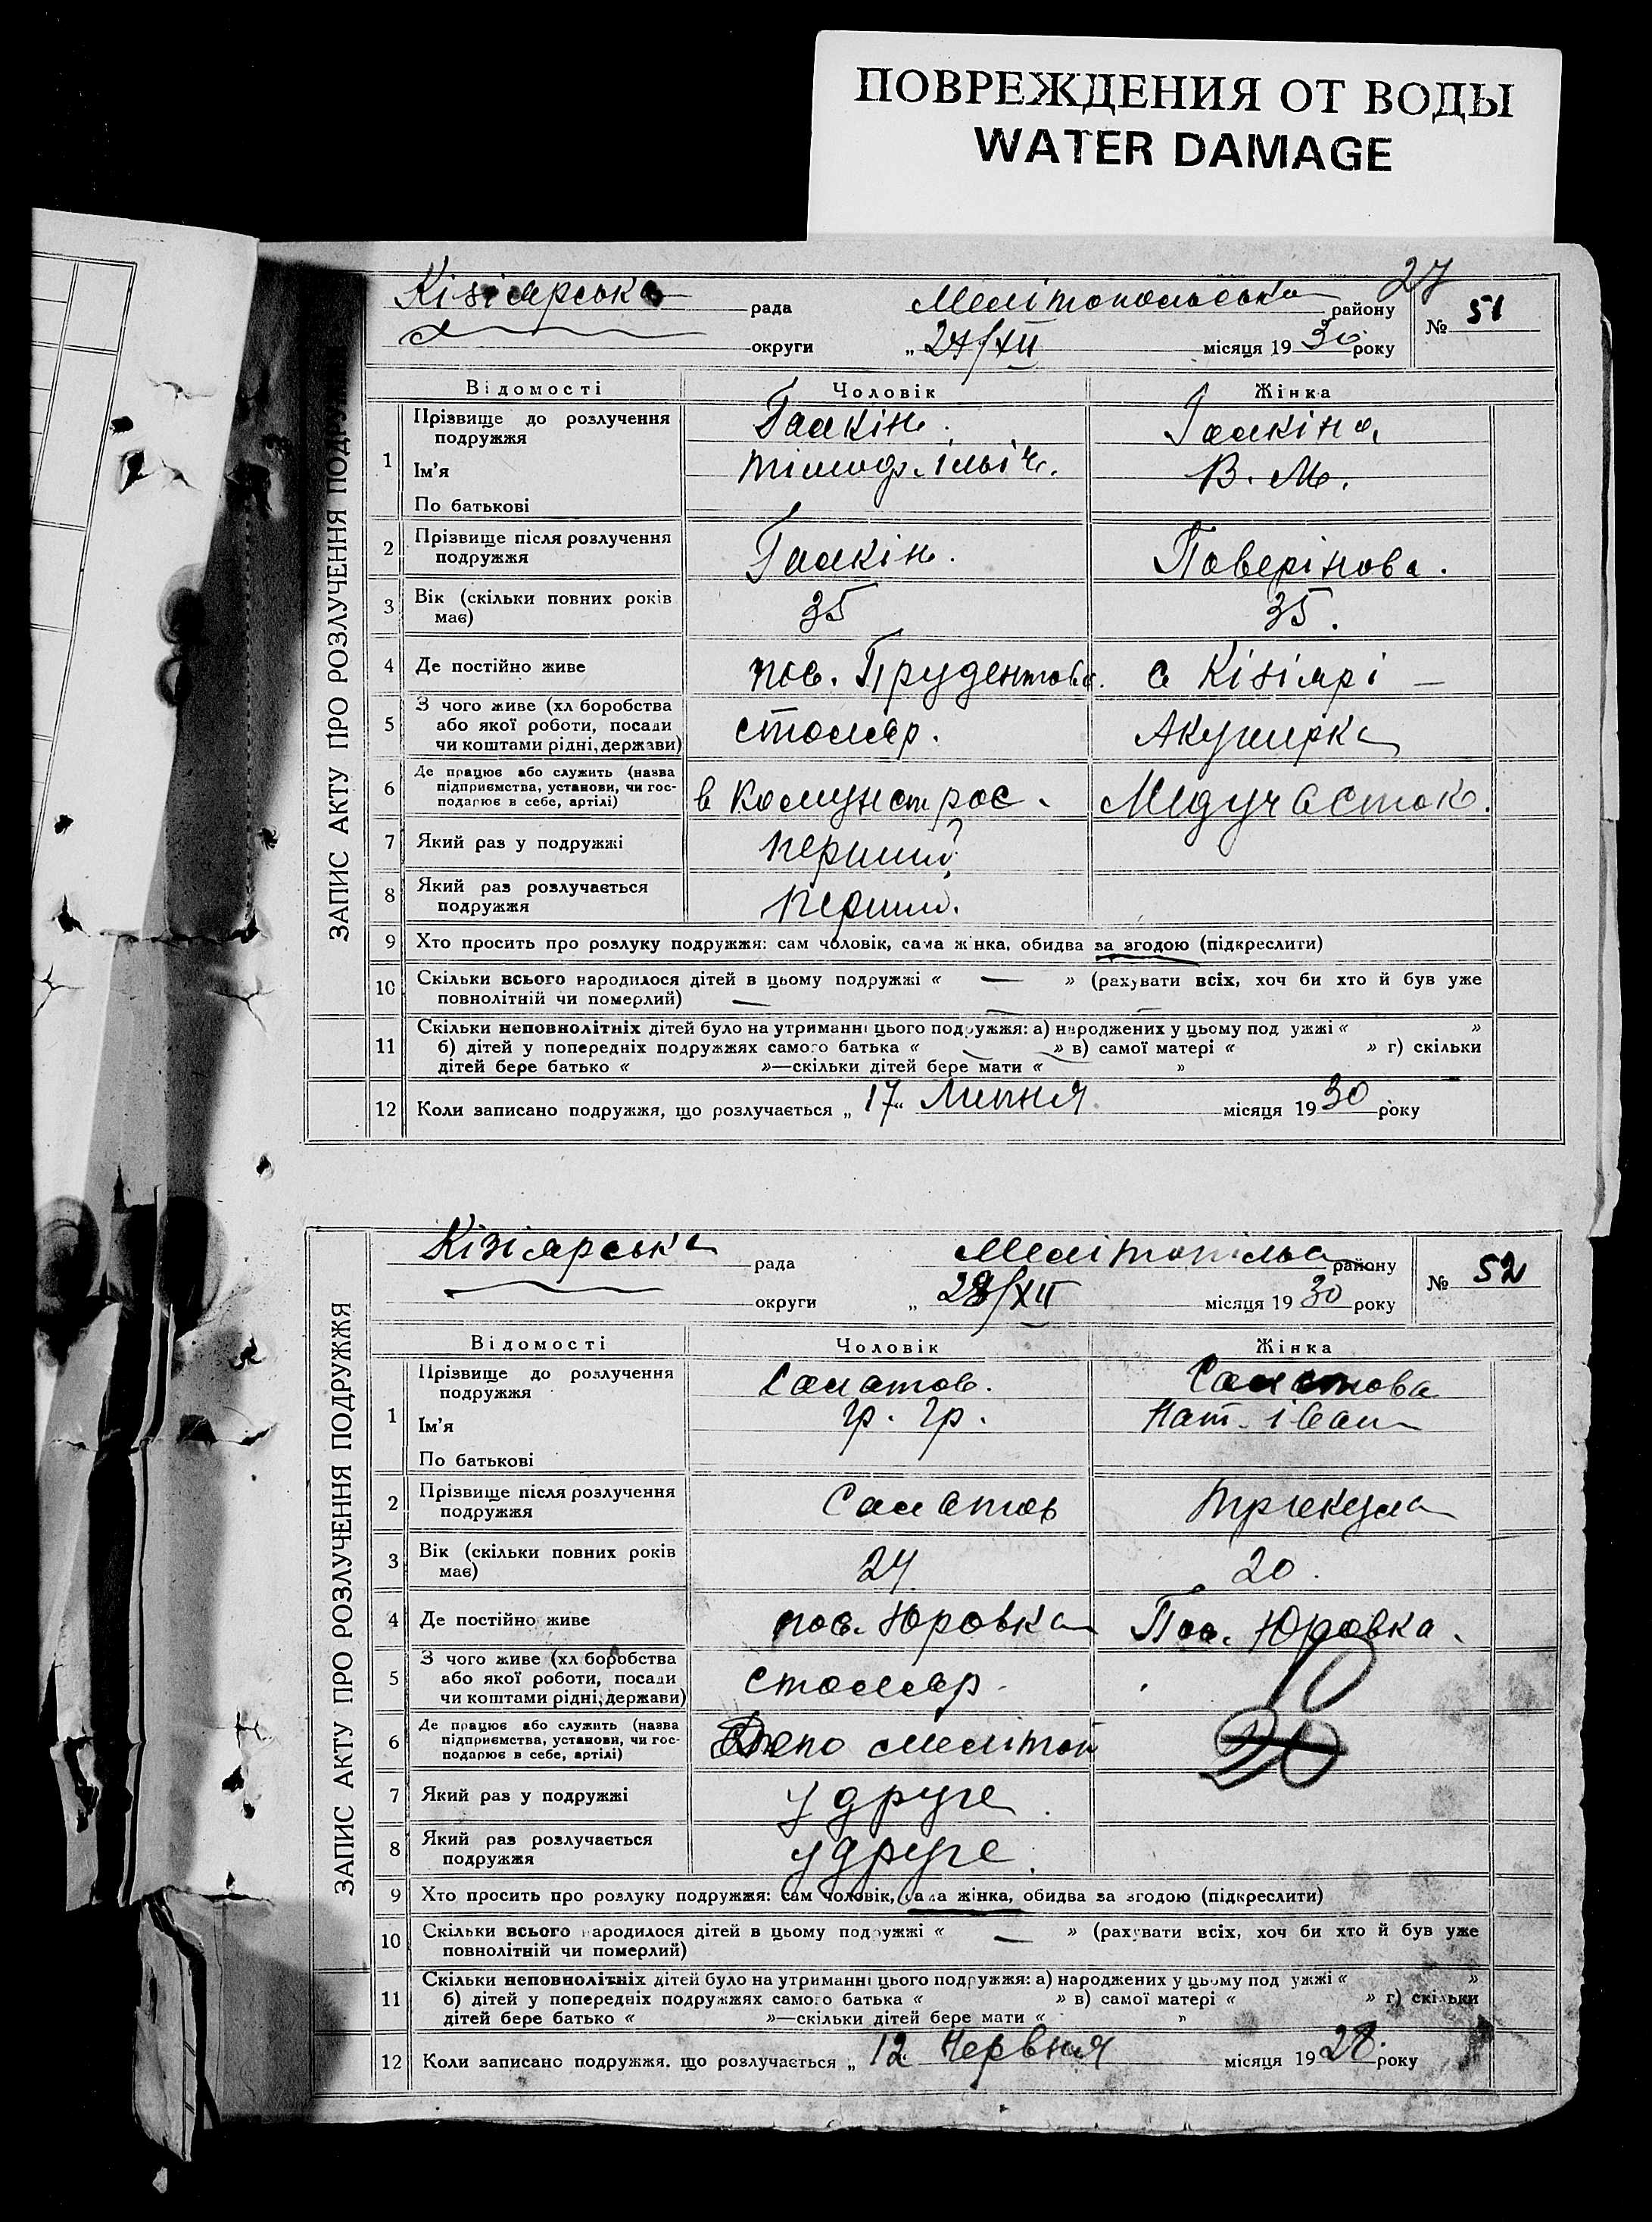 ПОВРЕЖДЕНИЯ ОТ ВОДЫ
WATER DAMAGE
27
ЗАПИС АКТУ ПРО РОЗЛУЧЕННЯ ПОДРУЖЖЯ
Кізіярська рада Мелітопольська району № 51
округи „ 27/XII місяця 1930 року
Відомості Чоловік Жінка
1 Прізвище до розлучення подружжя Галкін. Галкіна,
Ім'я Тімоф. ільіч. В. М.
По батькові
2 Прізвище після розлучення подружжя Галкін. Паверінова.
3 Вік (скільки повних років має) 35 35.
4 Де постійно живе пос. Прудентова. с Кізіярі —
5 З чого живе (хл боробства або якої роботи, посади чи коштами рідні, держави) столяр. Акушерка
6 Де працює або служить (назва підприємства, установи, чи господарює в себе, артілі) в Комунстрое.
7 Який раз у подружжі перший
8 Який раз розлучається подружжя перший.
9 Хто просить про розлуку подружжя: сам чоловік, сама жінка, обидва за згодою (підкреслити)
10 Скільки всього народилося дітей в цьому подружжі « — » (рахувати всіх, хоч би хто й був уже
повнолітній чи померлий) —
11 Скільки неповнолітніх дітей було на утриманні цього подружжя: а) народжених у цьому под ужжі « »
б) дітей у попередніх подружжях самого батька « » в) самої матері « » г) скільки
дітей бере батько « »—скільки дітей бере мати « »
12 Коли записано подружжя, що розлучається „ 17 “ Липня місяця 1930 року
ЗАПИС АКТУ ПРО РОЗЛУЧЕННЯ ПОДРУЖЖЯ
Кізіярська рада району № 52
округи „ 28/XII місяця 1930 року
Відомості Чоловік Жінка
1 Прізвище до розлучення подружжя Салатов. Салатова
Ім'я Гр. Гр. Нат. іван
По батькові
2 Прізвище після розлучення подружжя Салатов
3 Вік (скільки повних років має) 24 20.
4 Де постійно живе пос. Юровка Пос. Юровка.
5 З чого живе (хл боробства або якої роботи, посади чи коштами рідні, держави) столяр.
6 Де працює або служить (назва підприємства, установи, чи господарює в себе, артілі) Депо Мелітоп
7 Який раз у подружжі удруге.
8 Який раз розлучається подружжя удруге.
9 Хто просить про розлуку подружжя: сам чоловік, сама жінка, обидва за згодою (підкреслити)
10 Скільки всього народилося дітей в цьому подружжі « — » (рахувати всіх, хоч би хто й був уже
повнолітній чи померлий)
11 Скільки неповнолітніх дітей було на утриманні цього подружжя: а) народжених у цьому под ужжі « »
б) дітей у попередніх подружжях самого батька « » в) самої матері « » г) скільки
дітей бере батько « »—скільки дітей бере мати « »
12 Коли записано подружжя, що розлучається „ 12 “ Червня місяця 1928. року